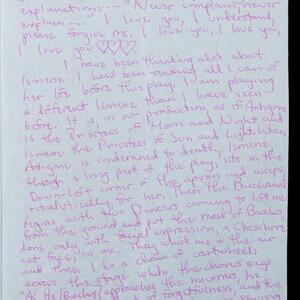 explanations --- "Never complain, never
explain ---" I love you, I understand,
please forgive me, I love you, I love you,
I love you ♡♡♡♡
I have been thinking alot about
Ismene. I have been reading all I can of
her life before this play. I am playing
a different Ismene than I have seen
before. It is, in our production, as if Antigone
is the Priestess of Moon and Night and
Ismene the Priestess of Sun and Light. When
Antigone is condemned to death, Ismene,
through a long part of the play, sits in the
Down-left corner of the apron and weeps,
ritualistically, for her. Then the Bacchanal
begins with two Dancers coming to lift me
from the ground and put the mask of Bacchus,
done only with facial expression, a Chesshire
cat face, on me. They whirl me in the air
and then I do a chain of cartwheels
across the stage while the chorus says
"As the Bacchus approaches the mourners, he
of forgetfulness, and the